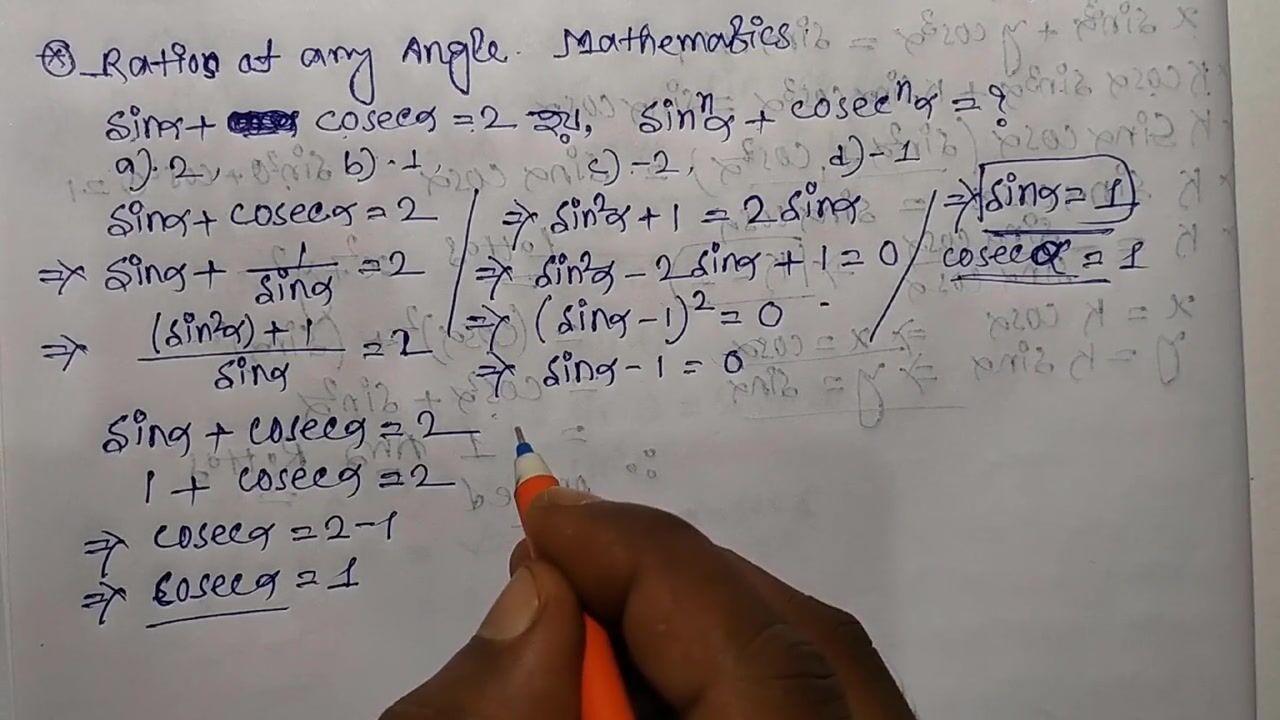 Ratios at any Angle. Mathematics
sinα + cosecα = 2 হয়, sinⁿα + cosecⁿα = ?
a) 2, b) -1, c) -2, d) -1
sinα + cosecα = 2
⇒ sinα + 1/sinα = 2
⇒ (sin²α) + 1 / sinα = 2
⇒ sin²α + 1 = 2 sinα
⇒ sin²α - 2 sinα + 1 = 0
⇒ (sinα - 1)² = 0
⇒ sinα - 1 = 0
⇒ sinα = 1
cosecα = 1
sinα + cosecα = 2
1 + cosecα = 2
⇒ cosecα = 2-1
⇒ cosecα = 1